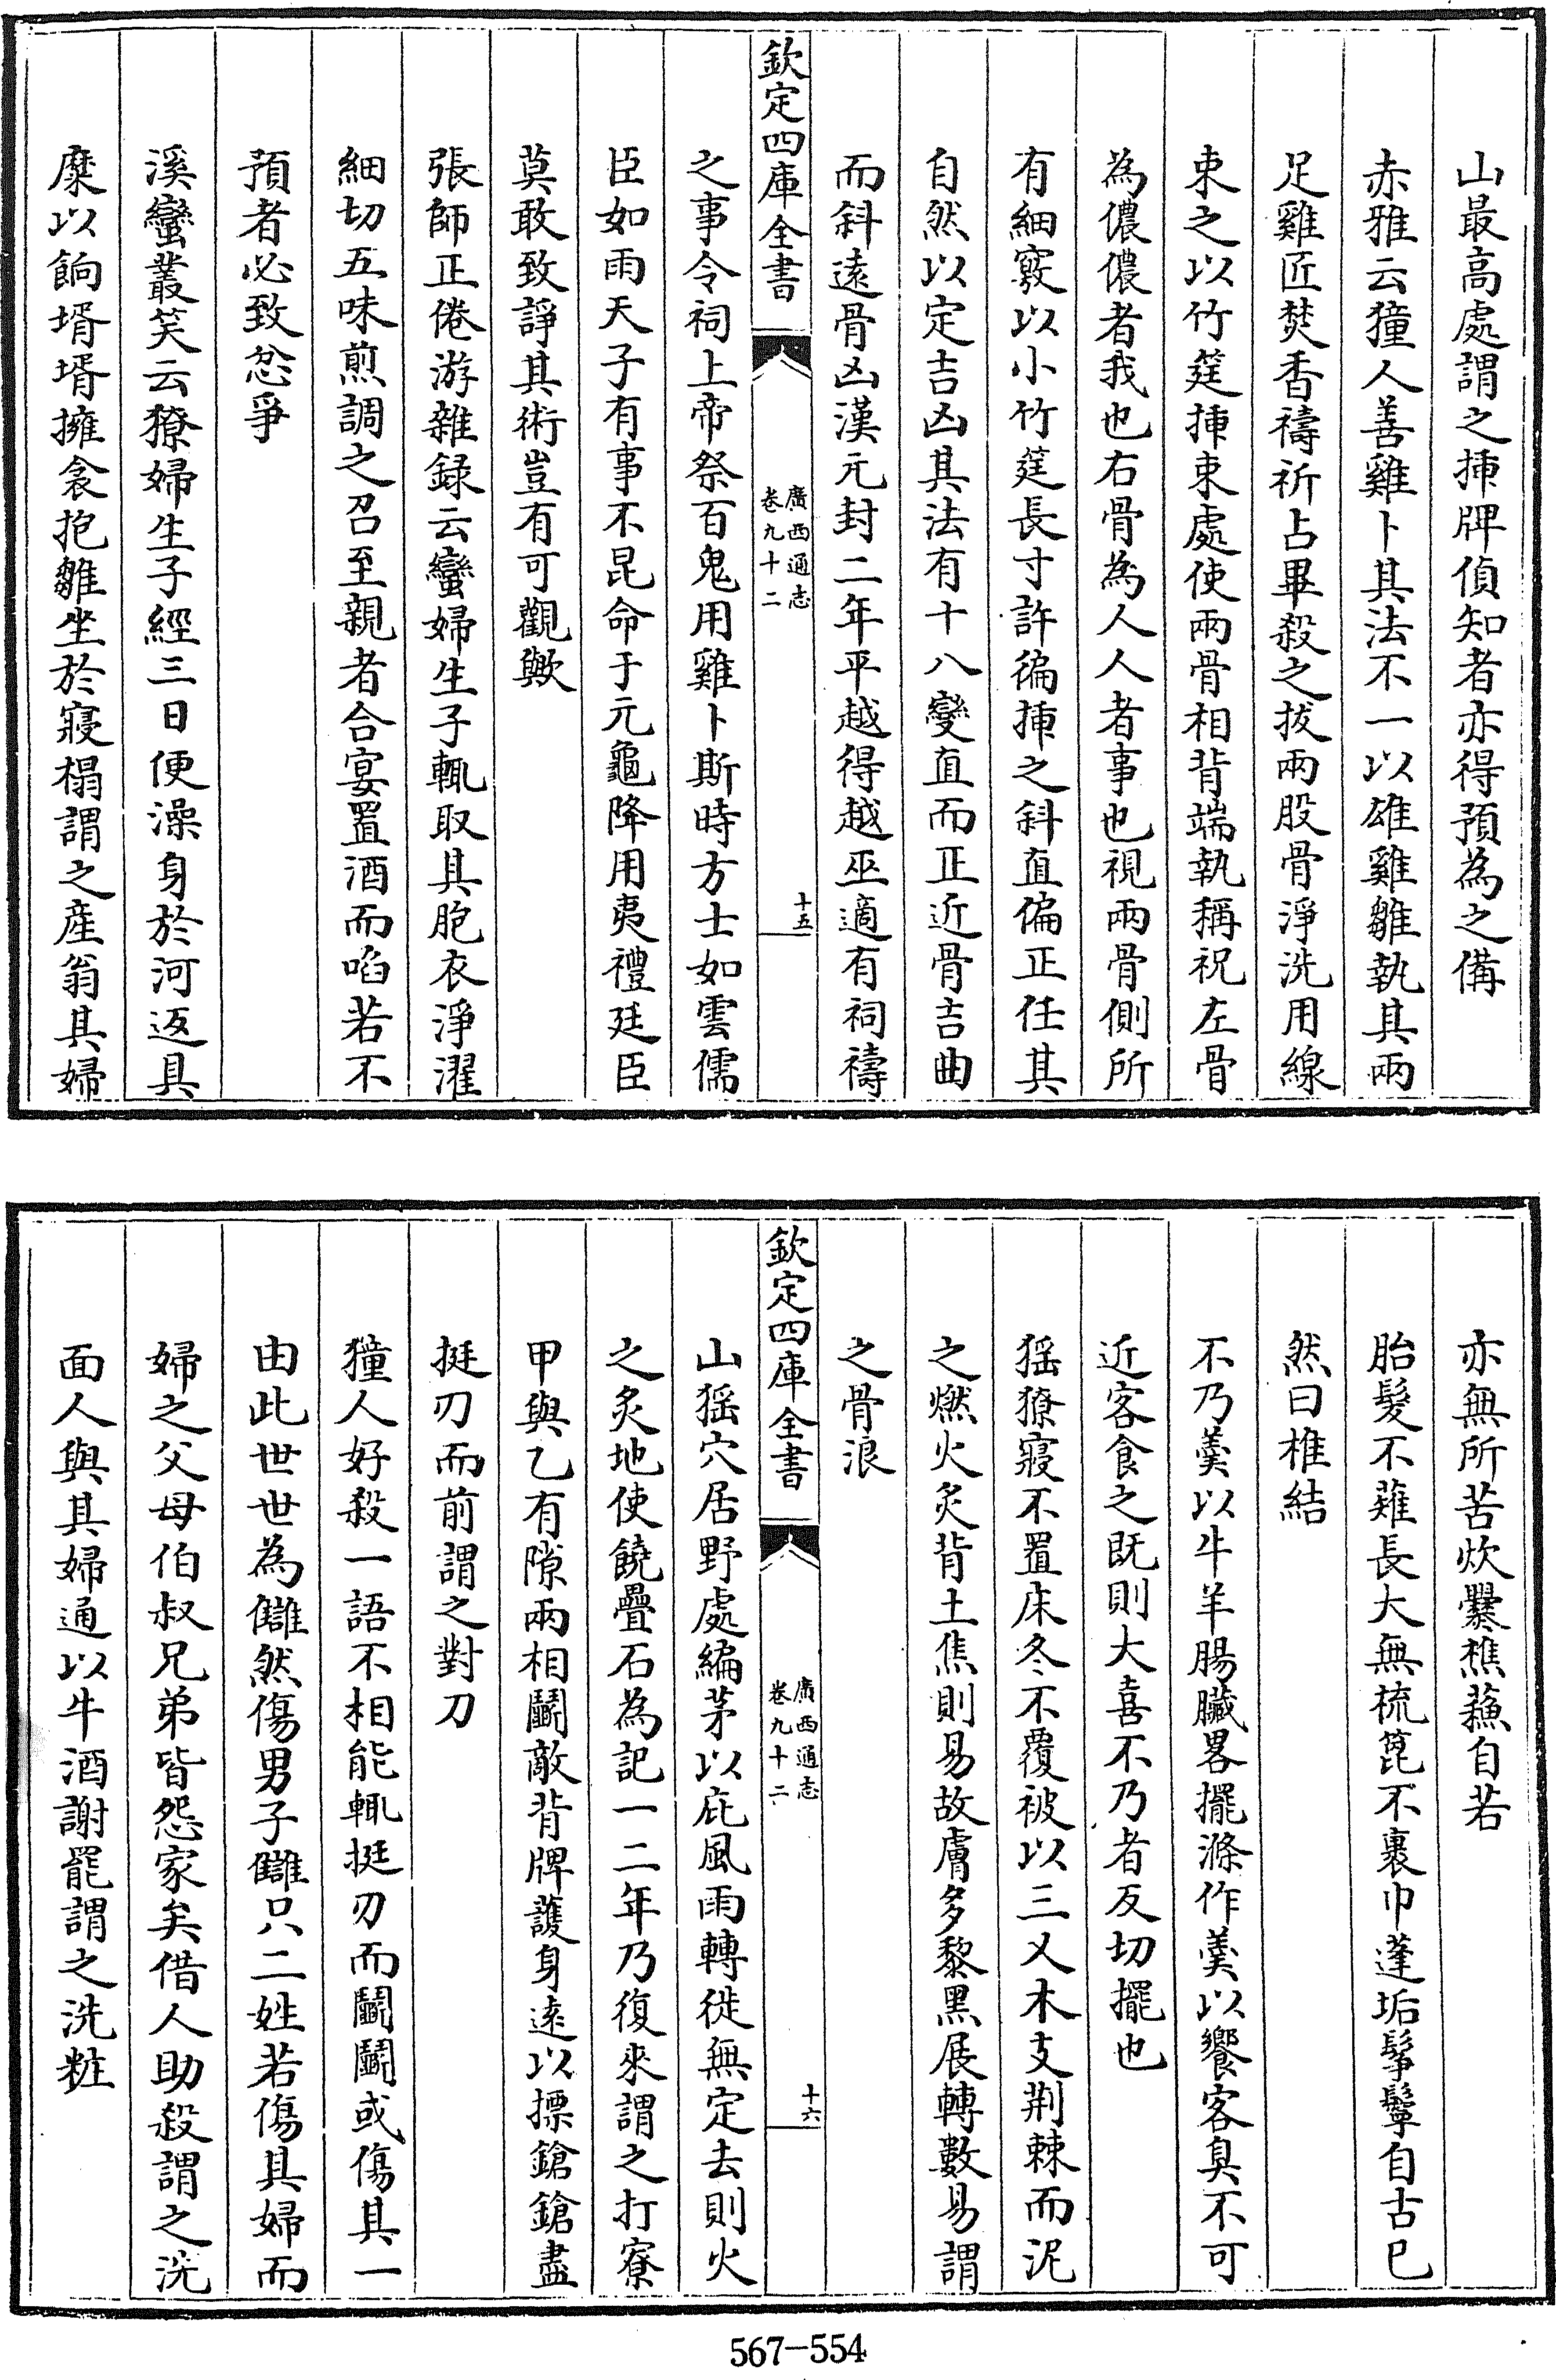 山最高處謂之揷牌偵知者亦得預為之備
赤雅云獞人善雞卜其法不一以雄雞雛執其兩
足雞匠焚香禱祈占畢殺之拔兩股骨淨洗用線
束之以竹筳揷束處使兩骨相背端執稱祝左骨
為儂儂者我也右骨為人人者事也視兩骨側所
有細竅以小竹筳長寸許徧揷之斜直偏正任其
自然以定吉凶其法有十八變直而正近骨吉曲
而斜逺骨凶漢元封二年平越得越巫適有祠禱
欽定四庫全書
廣西通志
卷九十二
十五
之事令祠上帝祭百鬼用雞卜斯時方士如雲儒
臣如雨天子有事不昆命于元龜降用夷禮廷臣
莫敢致諍其術豈有可觀歟
張師正倦游雜録云蠻婦生子輒取其胞衣淨濯
細切五味煎調之召至親者合宴置酒而啗若不
預者必致忿爭
溪蠻叢笑云獠婦生子經三日便澡身於河返具
糜以餉壻壻擁衾抱雛坐於寢榻謂之産翁其婦
亦無所苦炊爨樵蘓自若
胎髮不薙長大無梳箆不裹巾蓬垢髼鬡自古已
然曰椎結
不乃羹以牛羊腸臟畧擺滌作羹以饗客臭不可
近客食之既則大喜不乃者反切擺也
猺獠寢不置床冬不覆被以三义木支荆棘而泥
之燃火炙背土焦則易故膚多黎黑展轉數易謂
之骨浪
欽定四庫全書
廣西通志
卷九十二
十六
山猺穴居野處編茅以庇風雨轉徙無定去則火
之炙地使饒疊石為記一二年乃復來謂之打寮
甲與乙有隙兩相鬭敵背牌䕶身逺以摽鎗鎗盡
挺刃而前謂之對刀
獞人好殺一語不相能輒挺刃而鬭鬭或傷其一
由此世世為讎然傷男子讎只二姓若傷其婦而
婦之父母伯叔兄弟皆怨家矣借人助殺謂之洗
面人與其婦通以牛酒謝罷謂之洗粧
567-554